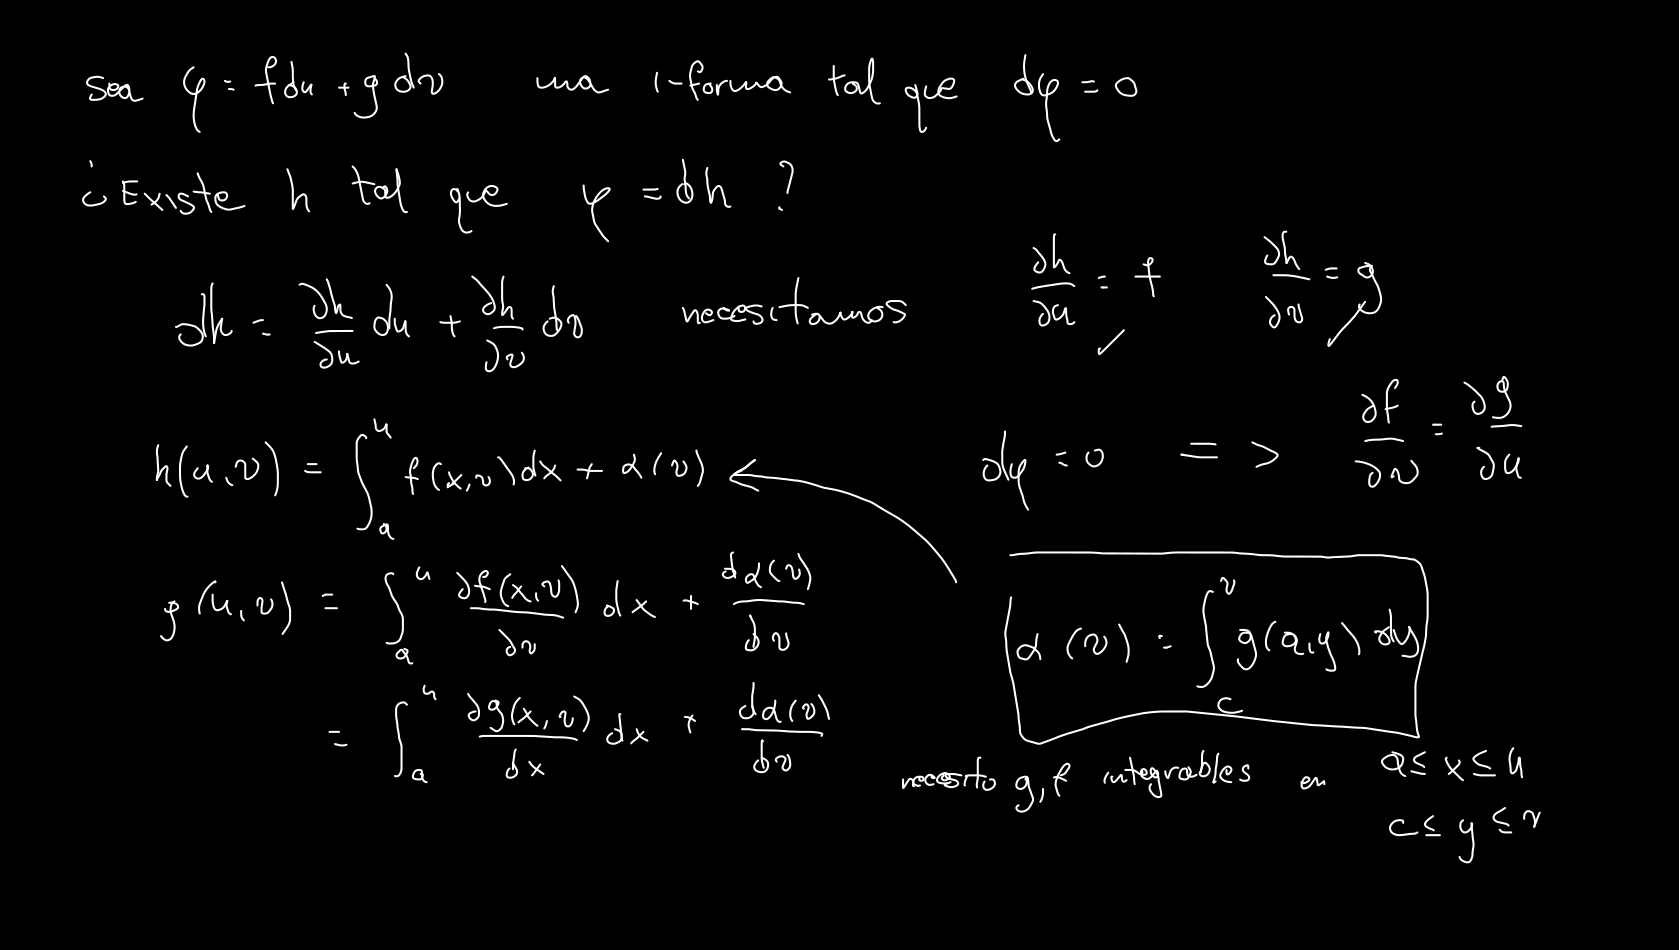 sea φ = f du + g dv una 1-forma tal que dφ = 0
¿Existe h tal que φ = dh ?
dh = ∂h/∂u du + ∂h/∂v dv necesitamos ∂h/∂u = f ✓ ∂h/∂v = g ✓
h(u,v) = ∫_a^u f(x,v) dx + α(v) ← dφ = 0 => ∂f/∂v = ∂g/∂u
g(u,v) = ∫_a^u ∂f(x,v)/∂v dx + dα(v)/dv
α(v) = ∫_c^v g(a,y) dy
= ∫_a^u ∂g(x,v)/∂x dx + dα(v)/dv
necesito g, f integrables en a ≤ x ≤ u
c ≤ y ≤ v